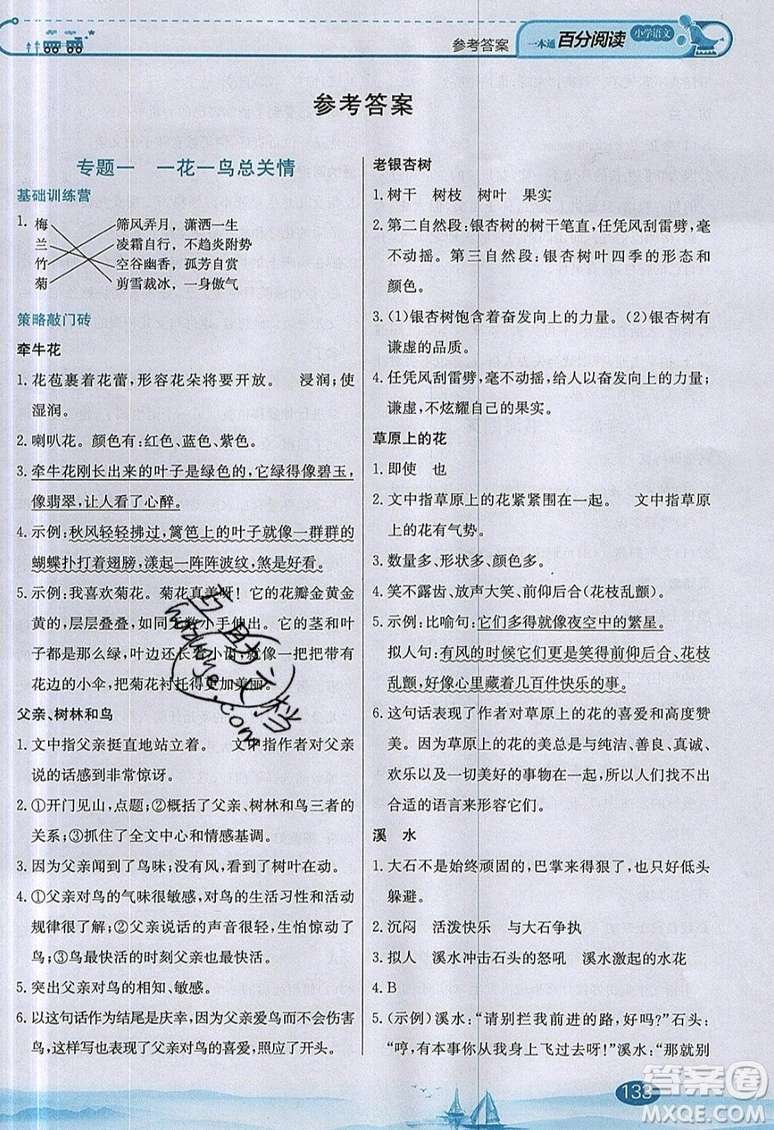 参考答案
一本通
百分阅读
小学语文
参考答案
专题一 一花一鸟总关情
基础训练营
1. 梅 筛风弄月，潇洒一生
兰 凌霜自行，不趋炎附势
竹 空谷幽香，孤芳自赏
菊 剪雪裁冰，一身傲气
策略敲门砖
牵牛花
1. 花苞裹着花蕾，形容花朵将要开放。 浸润；使
湿润。
2. 喇叭花。颜色有：红色、蓝色、紫色。
3. 牵牛花刚长出来的叶子是绿色的，它绿得像碧玉，
像翡翠，让人看了心醉。
4. 示例：秋风轻轻拂过，篱笆上的叶子就像一群群的
蝴蝶扑打着翅膀，漾起一阵阵波纹，煞是好看。
5. 示例：我喜欢菊花。菊花真美呀！它的花瓣金黄金
黄的，层层叠叠，如同无数小手伸出。它的茎和叶
子都是绿色，叶边还长着小齿，就像给花朵带着绿
花边的小伞，把菊花衬托得更加美丽。
父亲、树林和鸟
1. 文中指父亲挺直地站立着。 文中指作者对父亲
说的话感到非常惊讶。
2. ①开门见山，点题；②概括了父亲、树林和鸟三者的
关系；③引出了全文中心和情感基调。
3. 因为父亲闻到了鸟味；没有风，看到了树叶在动。
4. ①父亲对鸟的气味很敏感，对鸟的生活习性和活动
规律很了解；②父亲说话的声音很轻，生怕惊动了
鸟；③鸟最快活的时刻父亲也最快乐。
5. 突出父亲对鸟的相知、敏感。
6. 以这句话作为结尾是庆幸，因为父亲爱鸟而不打
鸟。这样写突出了父亲对鸟的喜爱，照应了开头。
老银杏树
1. 树干 树枝 树叶 果实
2. 第二自然段：银杏树的树干笔直，任凭风刮雷劈，毫
不动摇。第三自然段：银杏树叶四季的形态和
颜色。
3. (1)银杏树饱含着奋发向上的力量。(2)银杏树有
谦虚的品质。
4. 任凭风刮雷劈，毫不动摇，给人以奋发向上的力量；
谦虚，不炫耀自己的果实。
草原上的花
1. 即使 也
2. 文中指草原上的花紧紧围在一起。 文中指草原
上的花有气势。
3. 数量多、形状多、颜色多。
4. 笑不露齿、放声大笑、前仰后合、花枝乱颤。
5. 示例：比喻句：它们多得就像夜空中的繁星。
拟人句：有风的时候呵，它们就前仰后合、花枝
乱颤，好像心里藏着几百件快乐的事。
6. 这句话表现了作者对草原上的花的喜爱和高度赞
美。因为草原上的花的美总是与纯洁、善良、真诚、
欢乐以及一切美好的事物在一起，作者已找不出更
合适的语言来形容它们。
溪 水
1. 大石不是始终顽固的，巴掌来得过猛，也只好低头
躲避。
2. 沉闷 活泼快乐 与大石争执
3. 拟人 溪水冲击石头的怒吼 溪水溅起的水花
4. B
5. (示例)溪水：“请别拦我前进的路，好吗？”石头：
“哼，有本事你就从我身上飞过去呀！”溪水：“那就别
133
答案圈
MXQE.COM